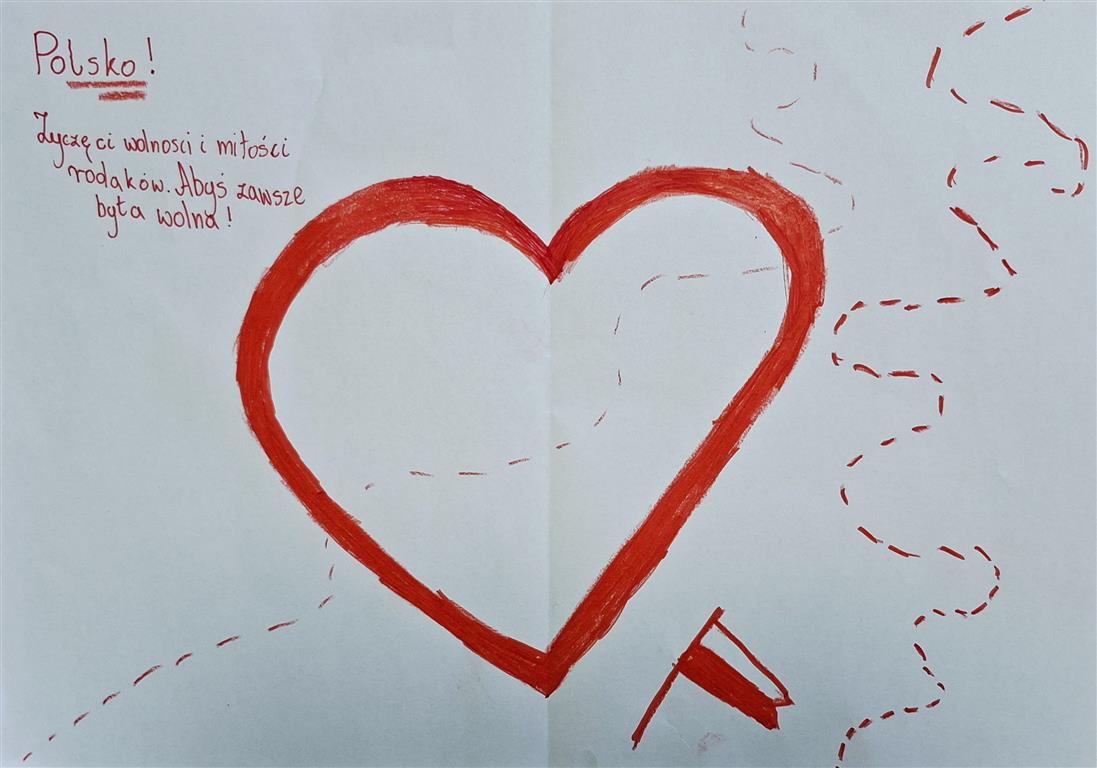 Polsko!
Życzę ci wolnosci i miłości
rodaków. Abyś zawsze
była wolna!